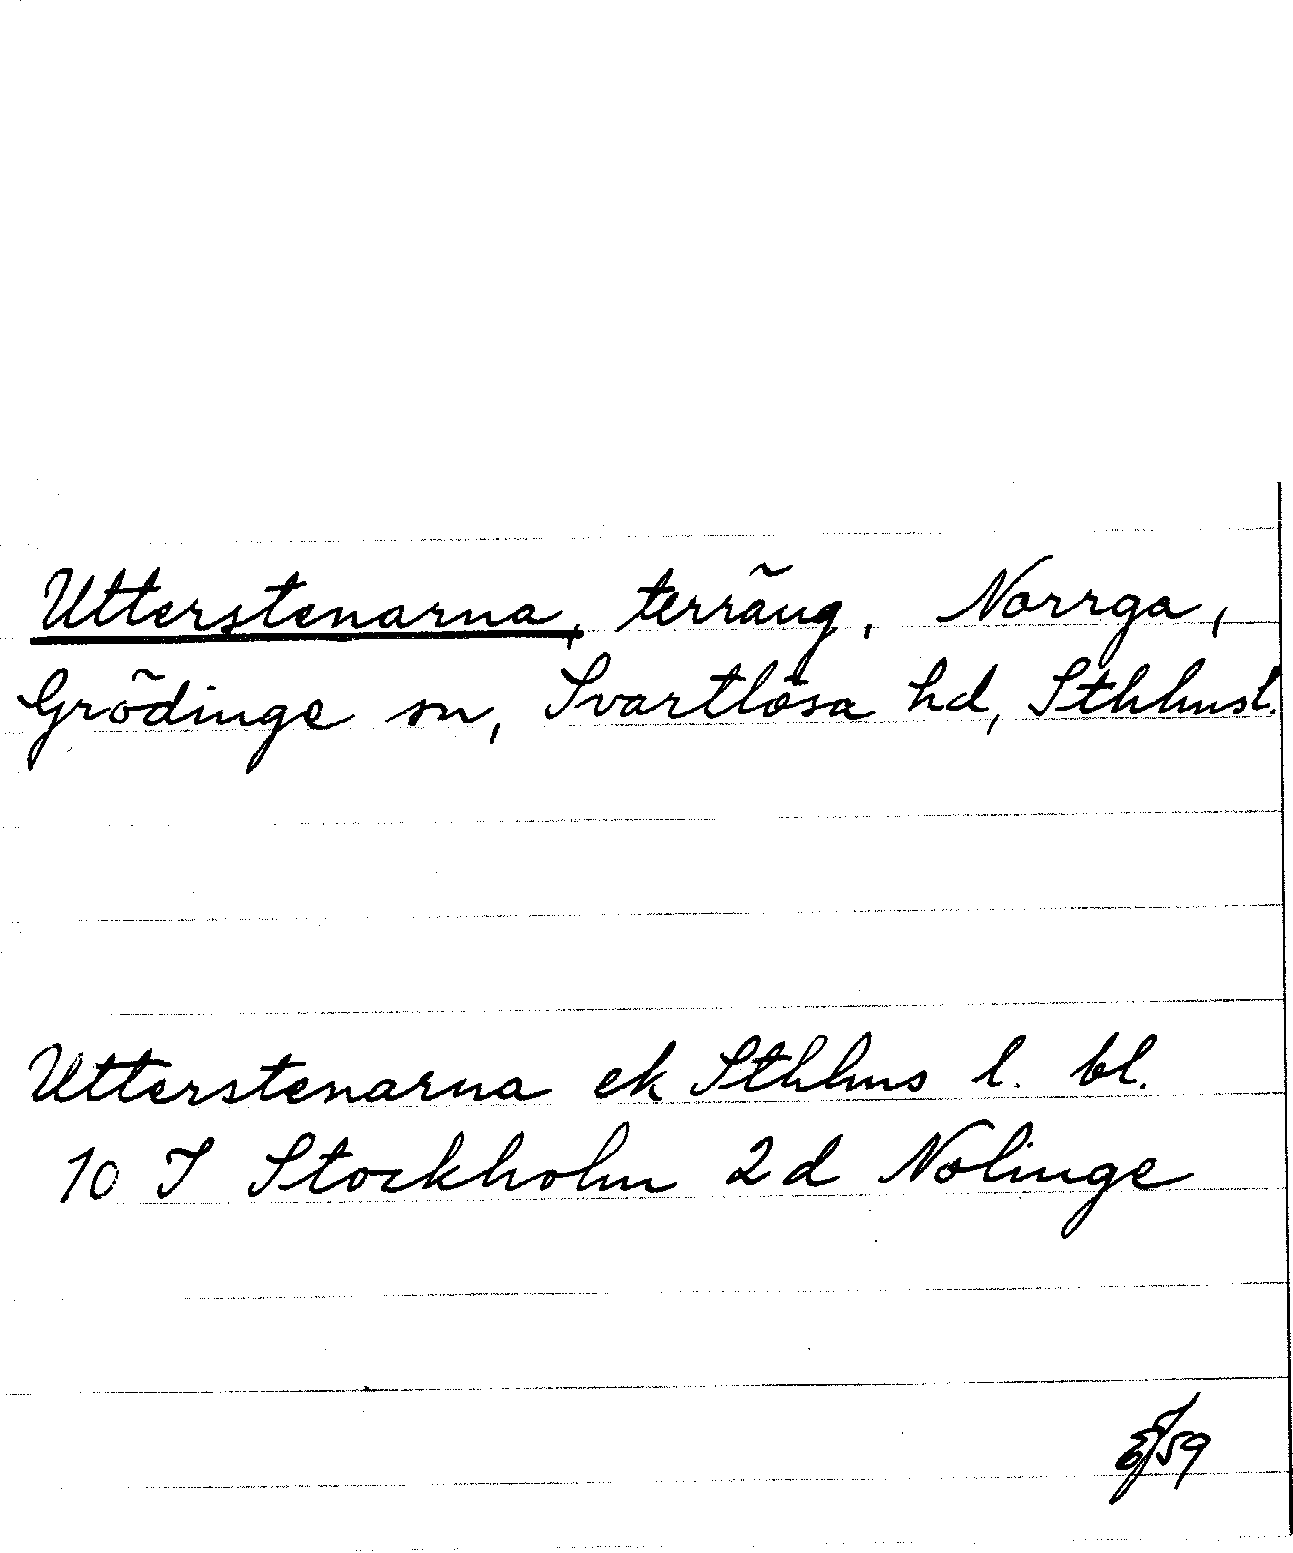 Utterstenarna, terräng, Norrga,
Grödinge sn, Svartlösa hd, Sthlmsl.
Utterstenarna ek Sthlms l. bl.
10 I Stockholm 2d Nolinge
/59